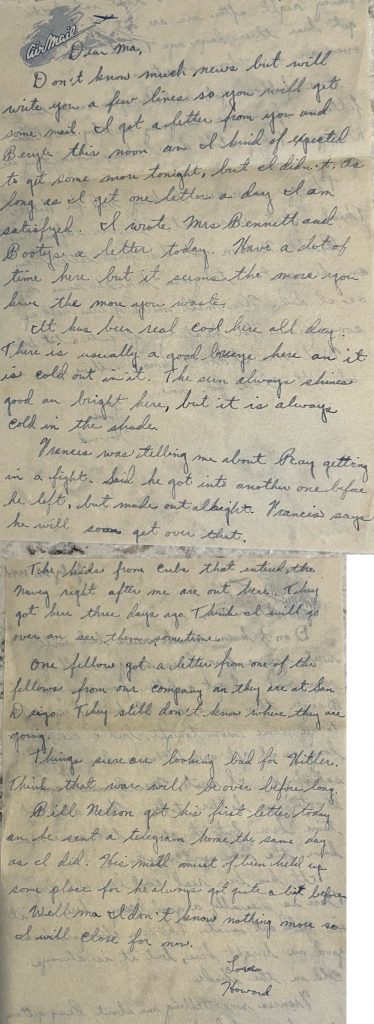 Air Mail
Dear Ma,
Don't know much news but will
write you a few lines so you will get
some mail. I got a letter from you and
Beryle this noon an I kind of expected
to get some more tonight, but I didn't. As
long as I get one letter a day I am
satisfyed. I wrote Mrs Bennett and
Bootys a letter today. Have a lot of
time here but it seems the more you
have the more you waste.
It has been real cool here all day.
There is usually a good breeze here an it
is cold out in it. The sun always shines
good an bright here, but it is always
cold in the shade.
Francis was telling me about Ray getting
in a fight. Said he got into another one before
he left, but made out alright. Francis says
he will soon get over that.
The kids from Cuba that enterd the
Navey right after me are out here. They
got here three days ago. Think I will go
over an see them sometime.
One fellow got a letter from one of the
fellows from our company an they are at San
Deigo. They still don't know where they are
going.
Things sure are looking bad for Hitler.
Think that war will be over before long.
Bill Nelson got his first letter today
an he sent a telegram home the same day
as I did. His mail must of been held up
some place for he always got quite a bit before.
Well ma I don't know nothing more so
I will close for now.
Love
Howard